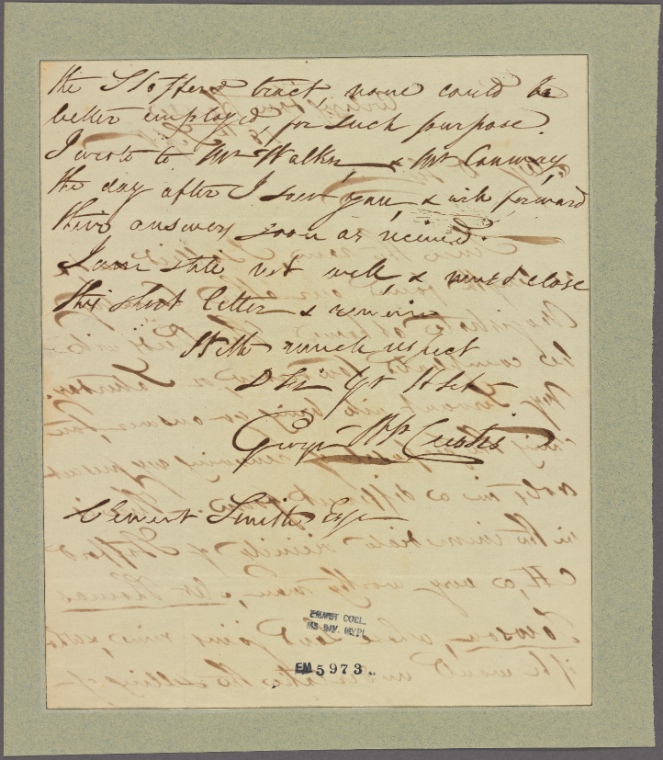 the Stafford tract none could be
better employed for such purpose.
I wrote to Mr Walker & Mr Conway
the day after I saw you & will forward
their answers soon as received.
I am still not well & must close
this short letter & remain
With much respect
D Sir Yr Ob St
George W P Custis
Clement Smith Esqr
EMMET COLL.
MS DIV. NYPL
EM 5973.